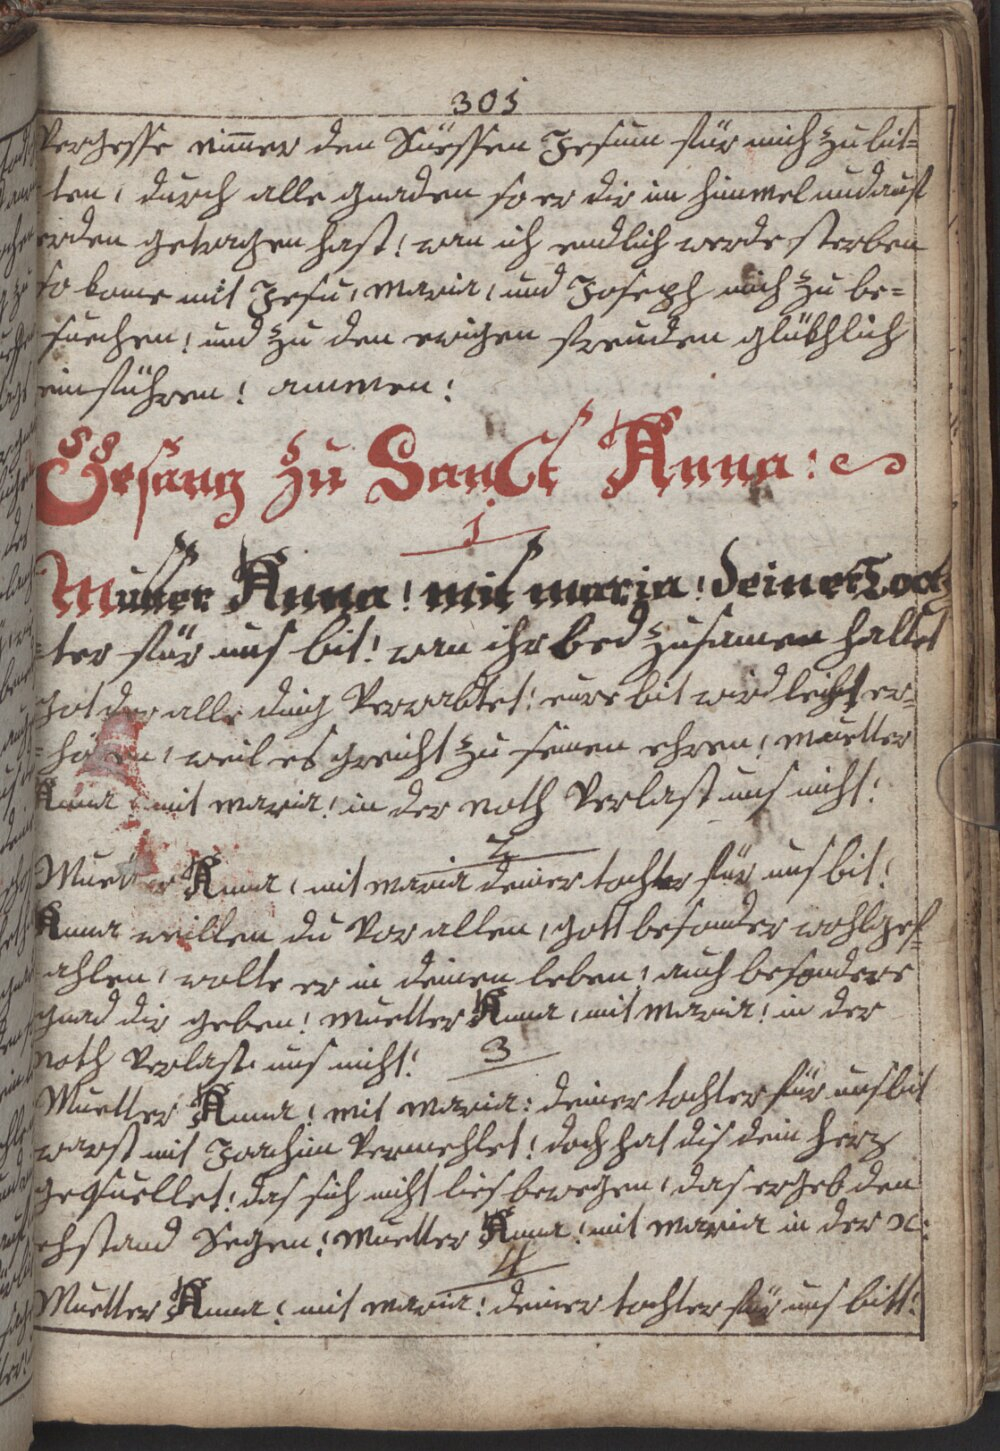 301
Vergesse nimmer den Süessen Jesum für mich zu bit=
ten, durch alle gnaden so er dir im himmel und auf
erden getragen hast! wan ich endlich werde sterben
so kome mit Jesu, Maria, und Joseph mich zu be=
suechen! und zu den ewigen freuden glükhlich
einführen! ammen!
Gesang zu Sanct Anna:
1
Mutter Anna! mit maria! deiner Toch=
=ter für uns bit! wan ihr bed zusamen haltet
Got der alle ding Verwabtet! eure bit wird leicht er=
=hören, weil es greicht zu seinen ehren! Muetter
Anna! mit maria! in der noth Verlast uns nicht!
2
Muetter Anna, mit maria deiner tochter für uns bit!
Anna weillen du Vor allen, gott besonder wohlgef=
ahlen, wolte er in deinen leben! auch besondere
gnad dir geben! Muetter Anna, mit Maria! in der
noth Verlast uns nicht!
3
Muetter Anna! mit Maria: deiner tochter für uns bit
warst mit Joachim Vermehlet! doch hat dis dein herz
gequellet! das sich nicht lies bewegen, das er geb den
ehstand Segen! Muetter Anna! mit Maria in der n:
4
Muetter Anna! mit maria! deiner tochter für uns bitt!